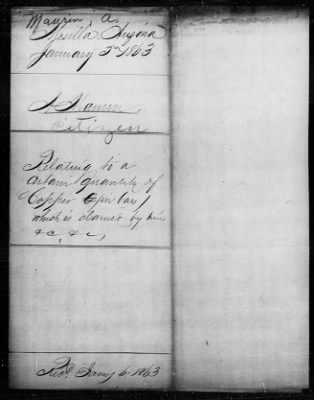 Maurin, A.
Mesilla, Arizona
January 3rd 1863
A Maurin
citizen
Relating to a
certain quantity of
Copper
which is claimed by him
&c, &c,
Recd Jany 6 1863